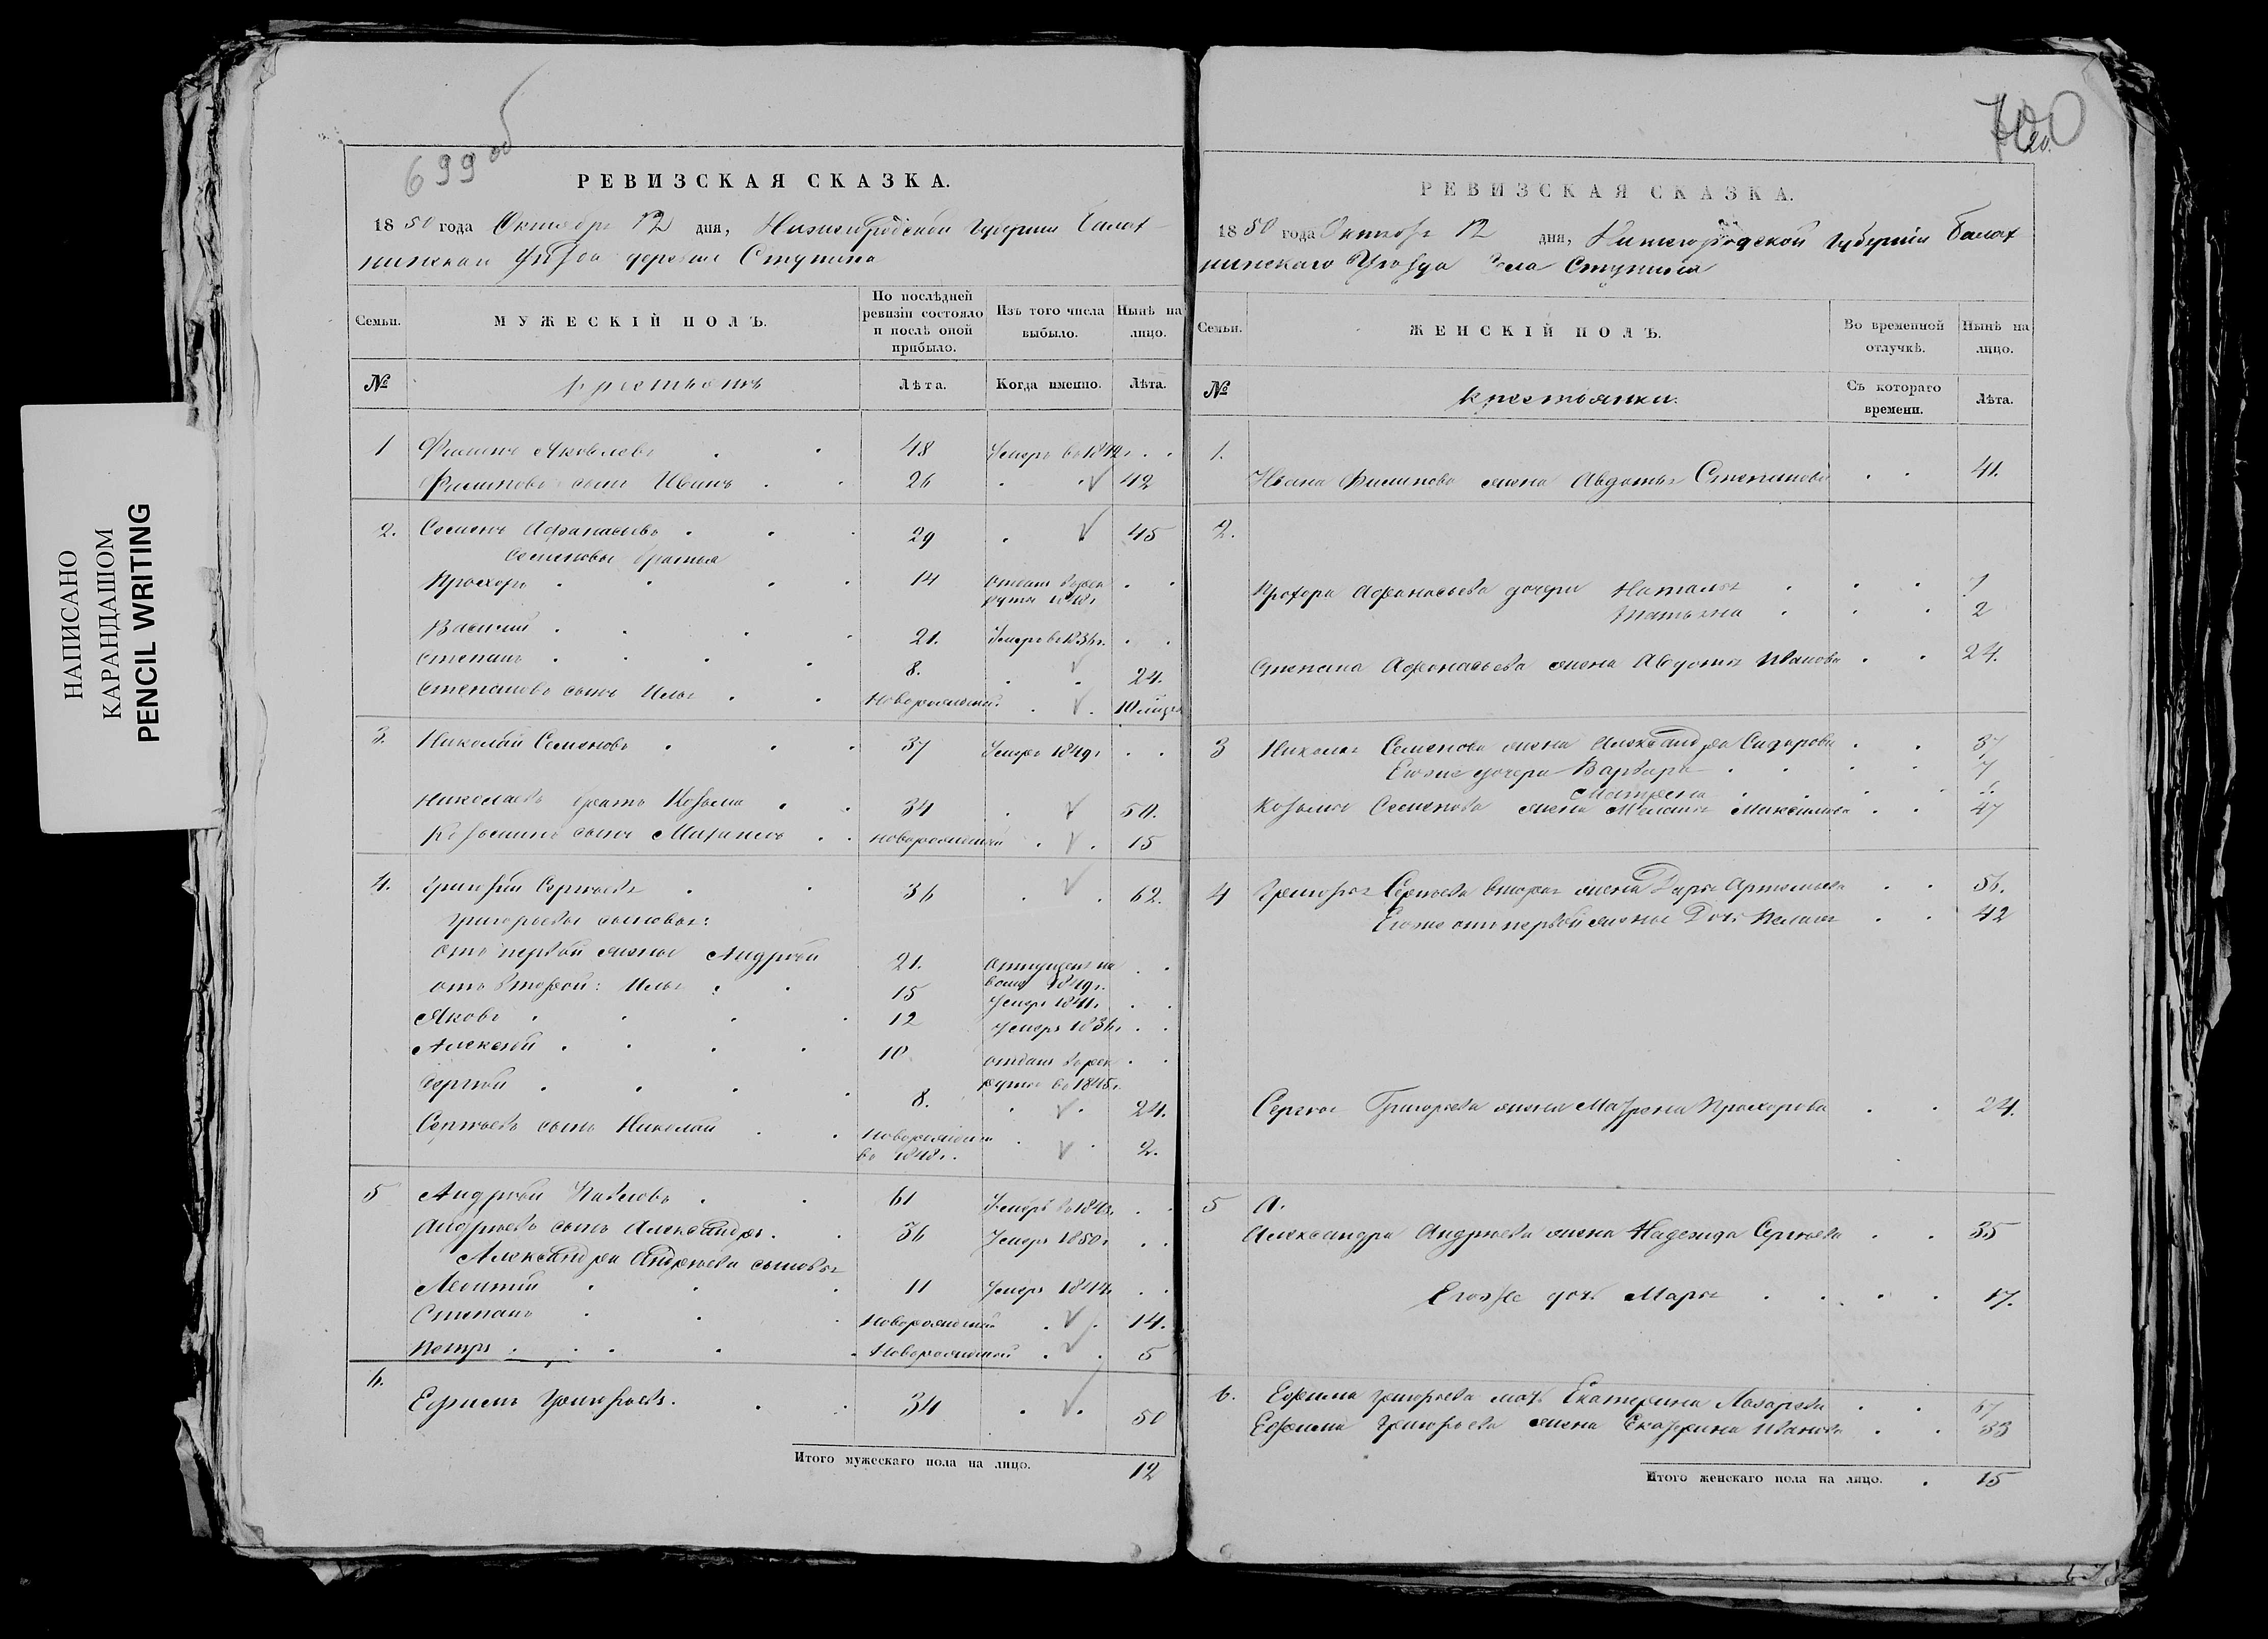 НАПИСАНО
КАРАНДАШОМ
PENCIL WRITING
699 об
РЕВИЗСКАЯ СКАЗКА.
1850 года Октября 12 дня, Нижегородской Губерніи Балах-
нинскаго Уѣзда деревни Ступина
Семьи.
МУЖЕСКІЙ ПОЛЪ.
По послѣдней ревизіи состояло и послѣ оной прибыло.
Изъ того числа выбыло.
Нынѣ на лицо.
№
крестьяне
Лѣта.
Когда именно.
Лѣта.
1 Филипъ Яковлевъ 48 Умеръ въ 184
Филиповъ сынъ Иванъ 26 42
2. Семенъ Афанасьевъ 29 45
Семеновы братья
Прохоръ 14 отданъ въ рек
руты
Василій 21. Умеръ въ 1836г.
Степанъ 8. 24.
Степановъ сынъ Илья Новорожденный 10 мѣсяц
3. Николай Семеновъ 37 Умеръ 1849г
Николаевъ братъ Козьма 34 50.
Козьминъ сынъ Михаилъ новорожденный 15
4. Григорій Сергѣевъ 36 62.
Григорьевы сыновья:
отъ первой жены Андрей 21. отпущенъ на
волю 1849г.
отъ второй: Илья 15 Умеръ 1841г.
Яковъ 12 Умеръ 1836г
Алексѣй 10 отданъ въ рек
руты въ 1845г.
Сергѣй 8. 24.
Сергѣевъ сынъ Николай Новорожденный
въ 1848г. 2.
5 Андрей Павловъ 61 Умеръ въ 184
Андреевъ сынъ Александръ 36 Умеръ 1850г
Александра Андреева сыновья
Леонтій 11 Умеръ 184
Степанъ Новорожденный 14.
Петръ Новорожденный 5
6. Ефимъ Григорьевъ. 34 50
Итого мужескаго пола на лицо. 12
700
РЕВИЗСКАЯ СКАЗКА.
1850 года Октября 12 дня, Нижегородской Губерніи Балах
нинскаго Уѣзда Села Ступина
Семьи.
ЖЕНСКІЙ ПОЛЪ.
Во временной отлучкѣ.
Нынѣ на лицо.
№
крестьянки.
Съ котораго времени.
Лѣта.
1.
Ивана Филипова жена Авдотья Степанова 41.
2.
Прохора Афанасьева дочери Наталья 7
Татьяна 2
Степана Афанасьева жена Авдотья Иванова 24.
3 Николая Семенова жена Александра Сидорова 37
Егоже дочери Варвара 7
Матрена
Козьмы Семенова жена Меланья Максимова 47
4 Григорья Сергѣева вторая жена Дарья Артемьева 56.
Егоже отъ первой жены Дочь Пелагея 42
Сергея Григорьева жена Матрена Прохорова 24.
5 А.
Александра Андреева жена Надежда Сергѣева 35
Егоже дочь Марья 17.
6. Ефима Григорьева мать Екатерина Лазарева 67
Ефима Григорьева жена Екатерина Иванова 33
Итого женскаго пола на лицо. 15